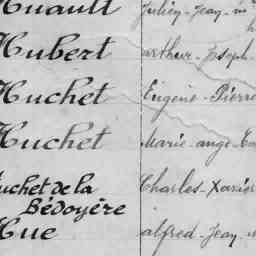 Huault Julien-Jean-M
Hubert arthur-Joseph
Huchet Eugène-Pierre
Huchet Marie-ange
Huchet de la Charles-Xavier
Bédoyère
Hue alfred-Jean